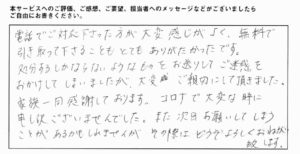 本サービスへのご評価、ご感想、ご要望、担当者へのメッセージなどがございましたら
ご自由にお書きください。
電話でご対応下さった方が大変感じがよく、無料で
引き取って下さることもとてもありがたかったです。
処分するしかならないようなものをお送りしてご迷惑を
おかけしてしまいましたが、大変ご親切にして頂きました。
家族一同感謝しております。コロナで大変な時に
申し訳ございませんでした。また次回お願いしてしまう
ことがあるかもしれませんがその際はどうぞよろしくおねがい
致します。